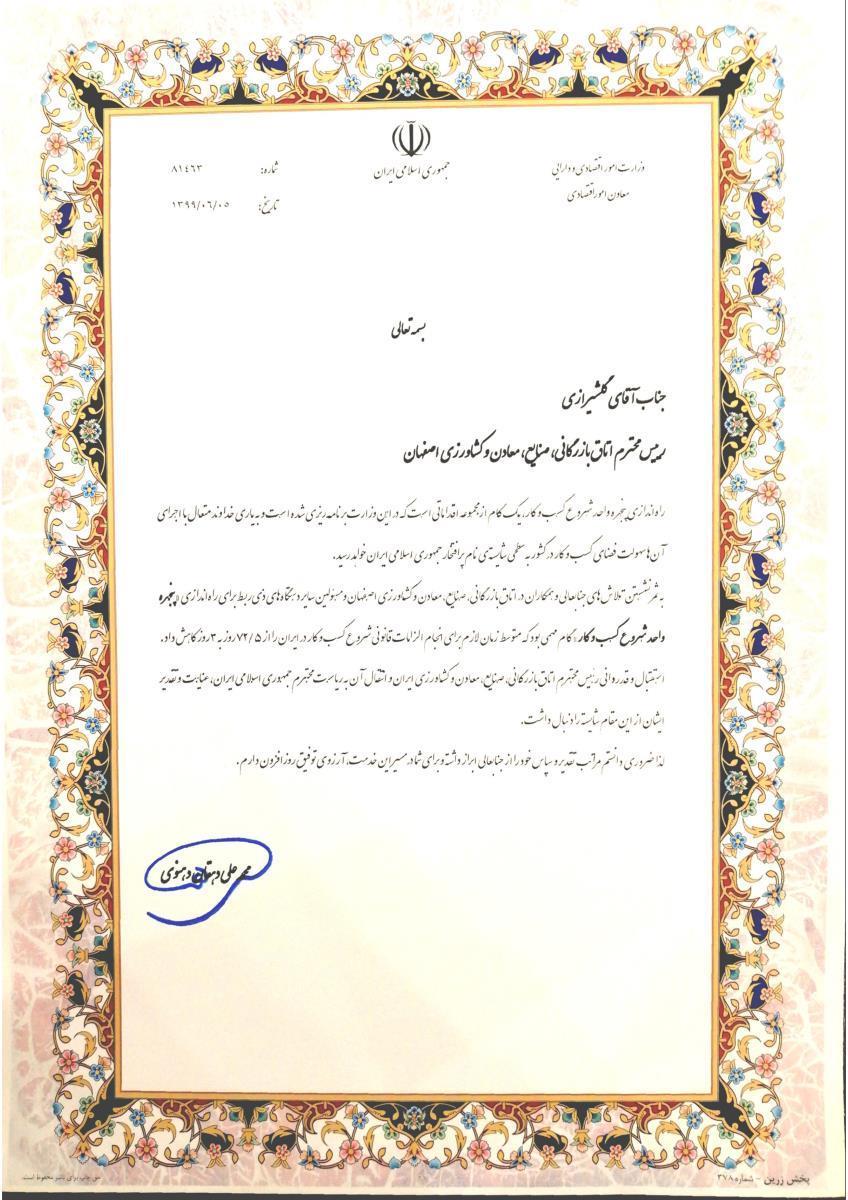 جمهوری اسلامی ایران
وزارت امور اقتصادی و دارایی
معاون امور اقتصادی
شماره: ٨١٤٦٣
تاریخ: ١٣٩٩/٠٦/٠٥
بسمه تعالی
جناب آقای گلشیرازی
رییس محترم اتاق بازرگانی، صنایع، معادن و کشاورزی اصفهان
راه اندازی پنجره واحد شروع کسب و کار، یک گام از مجموعه اقداماتی است که در این وزارت برنامه ریزی شده است و به یاری خداوند متعال با اجرای
آن ها سهولت فضای کسب و کار در کشور به سطحی شایسته‌ی نام پرافتخار جمهوری اسلامی ایران خواهد رسید.
به ثمر نشستن تلاش های جنابعالی و همکاران در اتاق بازرگانی، صنایع، معادن و کشاورزی اصفهان و مسئولین سایر دستگاه های ذی ربط برای راه اندازی «پنجره
واحد شروع کسب و کار» گام مهمی بود که متوسط زمان لازم برای انجام الزامات قانونی شروع کسب و کار در ایران را از ۷۲/۵ روز به ۳ روز کاهش داد.
استقبال و قدردانی رئیس محترم اتاق بازرگانی، صنایع، معادن و کشاورزی ایران و انتقال آن به ریاست محترم جمهوری اسلامی ایران، عنایت و تقدیر
ایشان از این مقام شایسته را دنبال داشت.
لذا ضروری دانستم مراتب تقدیر و سپاس خود را از جنابعالی ابراز داشته و برای شما در مسیر این خدمت، آرزوی توفیق روزافزون دارم.
محمد علی دهقان دهنوی
پخش زرین - شماره ۳۷۸
حق چاپ برای ناشر محفوظ است.